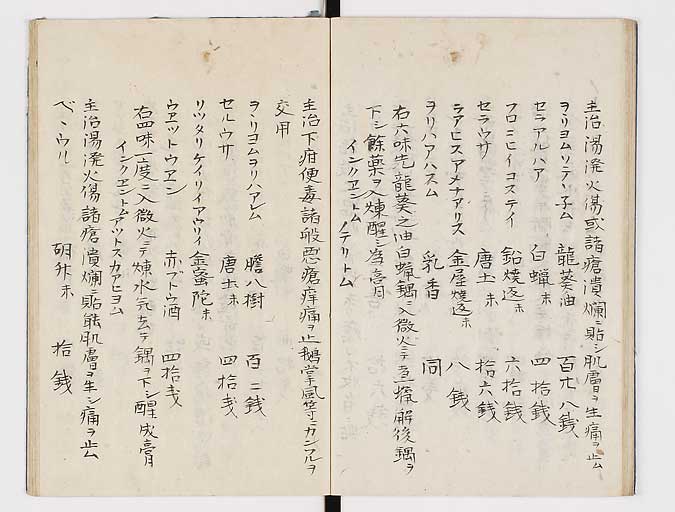 主治湯溌火傷或諸瘡潰爛ニ貼シ肌膚ヲ生痛ヲ止ム
ヲリヨムソラアニ子ム 龍葵油 百廿八銭
セラアルハア 白蝋 ホ 四拾銭
フロニヒイコステイ 鉛焼返ホ 六拾銭
セラウサ 唐土ホ 拾六銭
ラアヒスアメナアリス 金屋焼返ホ 八銭
ヲリハアハスム 乳香 同
右六味先龍葵之油白蝋鍋ニ入微火ニテ煉解後鍋ヲ
下シ餘薬ヲ入煉醒シ為膏
インクエントム ノテリトム
主治下疳便毒諸般悪瘡痒痛ヲ止鵝掌風等ニカンアルヲ
交用
ヲリヨムヲリハアレム 膽八樹 百二銭
セルウサ 唐土ホ 四拾戔
リツタリケイリイアウリイ 金蜜陀ホ
ウエツトウエン 赤ブトウ酒 四拾戔
右四味一度ニ入微火ニテ煉水気去テ鍋ヲ下シ醒成膏
インクエントムアツトスカアヒヨム
主治湯溌火傷諸瘡潰爛ニ貼能肌膚ヲ生シ痛ヲ止ム
ペヽウル 胡升末 拾銭